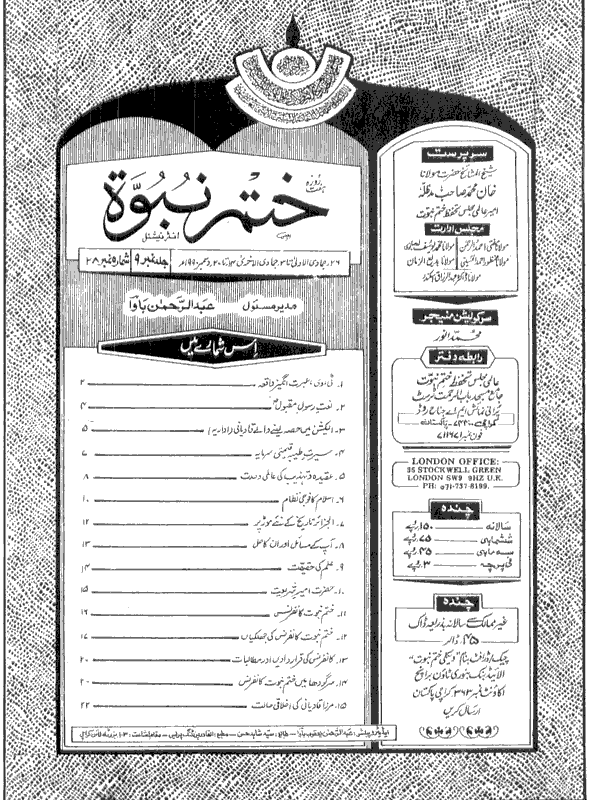 ہفت روزہ
ختم نبوۃ
انٹرنیشنل
جلد نمبر ۹ شمارہ نمبر ۲۸
مدیر مسئول عبدالرحمٰن باوا
اس شمارے میں
۱۔ ٹی وی، عبرت انگیز واقعہ ۲
۲۔ نعت رسول مقبول ۴
۳۔ الیکشن میں حصہ لینے والے قادیانی (اداریہ) ۵
۴۔ سیرت طیبہ قیمتی سرمایہ ۷
۵۔ عقیدہ و تہذیب کی عالمی وحدت ۸
۶۔ اسلام کا فوجی نظام ۱۰
۷۔ الجزائر تاریخ کے نئے موڑ پر ۱۲
۸۔ آپ کے مسائل اور ان کا حل ۱۳
۹۔ علم کی حقیقت ۱۴
۱۰۔ حضرت امیر شریعت ۱۵
۱۱۔ ختم نبوت کانفرنس ۱۶
۱۲۔ ختم نبوت کانفرنس کی جھلکیاں
۱۳۔ کانفرنس کی قرار دادیں اور مطالبات ۲۰
۱۴۔ سرگودھا میں ختم نبوت کانفرنس
۱۵۔ مرزا قادیانی کی اخلاقی حالت ۲۲
سرپرست
شیخ المشائخ حضرت مولانا
خان محمد صاحب مدظلہ
امیر عالمی مجلس تحفظ ختم نبوت
مجلس ادارت
مولانا مفتی احمد الرحمٰن مولانا محمد یوسف لدھیانوی
مولانا منظور احمد الحسینی مولانا بدیع الزمان
مولانا ڈاکٹر عبدالرزاق اسکندر
سرکولیشن منیجر
محمد انور
رابطہ دفتر
عالمی مجلس تحفظ ختم نبوت
جامع مسجد باب الرحمت ٹرسٹ
پرانی نمائش ایم اے جناح روڈ
کراچی ۷۴۳۰۰ - پاکستان
فون نمبر ۷۱۱۶۷۱
LONDON OFFICE:
35 STOCKWELL GREEN
LONDON SW9 9HZ U.K.
PH: 071-737-8199.
چندہ
سالانہ ۱۵۰ روپے
ششماہی ۷۵ روپے
سہ ماہی ۴۵ روپے
فی پرچہ ۳ روپے
چندہ
غیر ممالک سے سالانہ بذریعہ ڈاک
۲۵ ڈالر
چیک/ڈرافٹ بنام "ویکلی ختم نبوت"
الائیڈ بنک بنوری ٹاؤن برانچ
اکاؤنٹ نمبر ۳۶۳ کراچی پاکستان
ارسال کریں